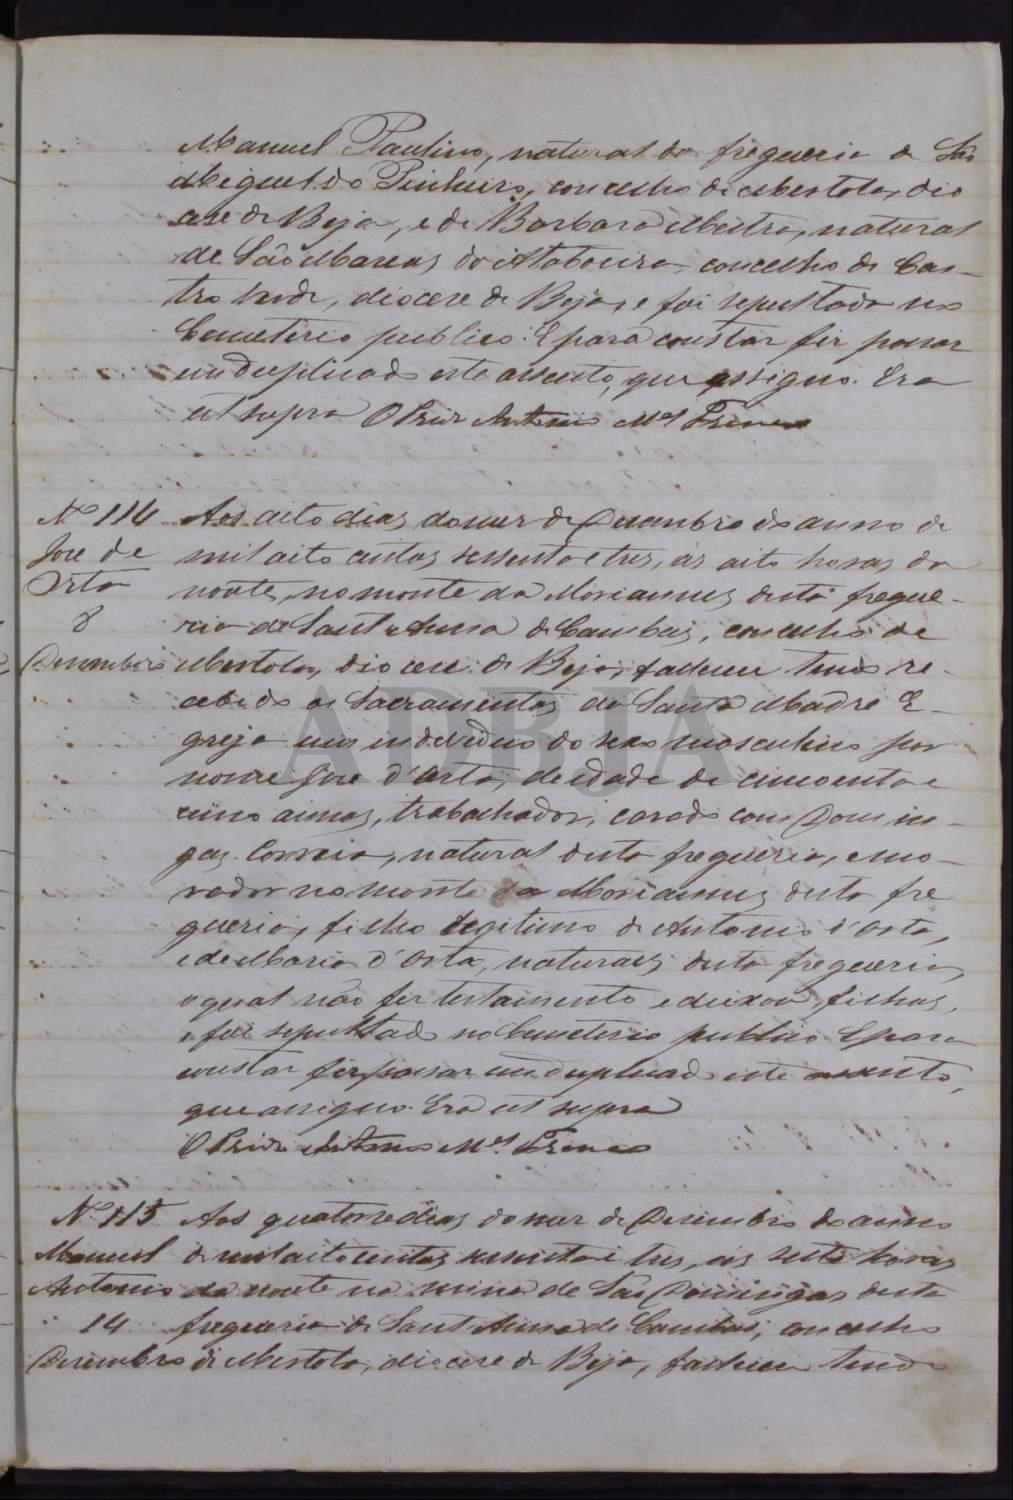 Manuel Paulino, natural da freguesia de São
Miguel do Pinheiro, concelho de Mertola, dio
cese de Beja, e de Barbara Mestra, natural
de São Marcos da Atabueira, concelho de Cas-
tro Verde, diocese de Beja, e foi sepultado no
Cemeterio publico. E para constar fiz passar
em duplicado este assento, que assigno. Era
ut supra O Prior Antonio M.el
Nº 114 Aos oito dias do mez de Desembro do anno de
Jose de mil oito centos sessenta e tres, ás oito horas da
Orta noute, no monte da Moriannes desta fregue-
8 sia de Sant Anna de Cambas, concelho de
Desembro Mertola, diocese de Beja, falleceu tendo re-
cebido os Sacramentos da Santa Madre E-
greja um individuo do sexo masculino por
nome Jose d'Orta, de idade de cincoenta e
cinco annos, trabalhador, casado com Domin-
gas Correia, natural desta freguesia, e mo-
rador no monte da Moriannes desta fre
guesia, filho legitimo de Antonio d'Orta,
e de Maria d'Orta, naturaes desta freguesia,
o qual não fez testamento e deixou filhos,
e foi sepultado no Cemeterio publico. E para
constar fiz passar em duplicado este assento,
que assigno. Era ut supra
O Prior Antonio M.el
Nº 115 Aos quatorze dias do mez de Desembro do anno
Manuel de mil oito centos sessenta e tres, ás sete horas
Antonio da noute na mina de São Domingos desta
14 freguesia de Sant Anna de Cambas, concelho
Desembro de Mertola, diocese de Beja, falleceu tendo
ADBJA